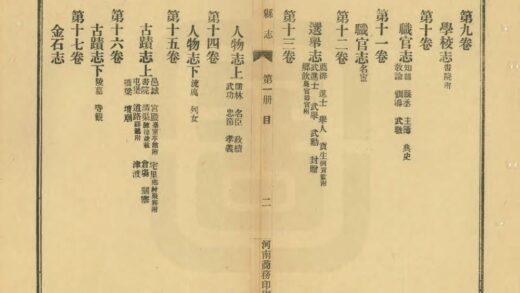 第九卷
學校志 書院附
第十卷
職官志 知縣 縣丞 主簿 典史
教諭 訓導 武職
第十一卷
職官志 名宦
第十二卷
選舉志 薦辟 進士 舉人 貢生
武進士 武舉 武勳 封贈
鄉飲
第十三卷
縣志 第一冊 目 二 河南商務印
人物志上 儒林 名臣 政績
武功 忠節 孝義
第十四卷
人物志下 流寓 列女
第十五卷
古蹟志上 宮殿 宅里
書院 溝渠 倉場 關寨
屯堡 道路 津渡
橋梁 壇廟
第十六卷
古蹟志下 陵墓 寺觀
第十七卷
金石志